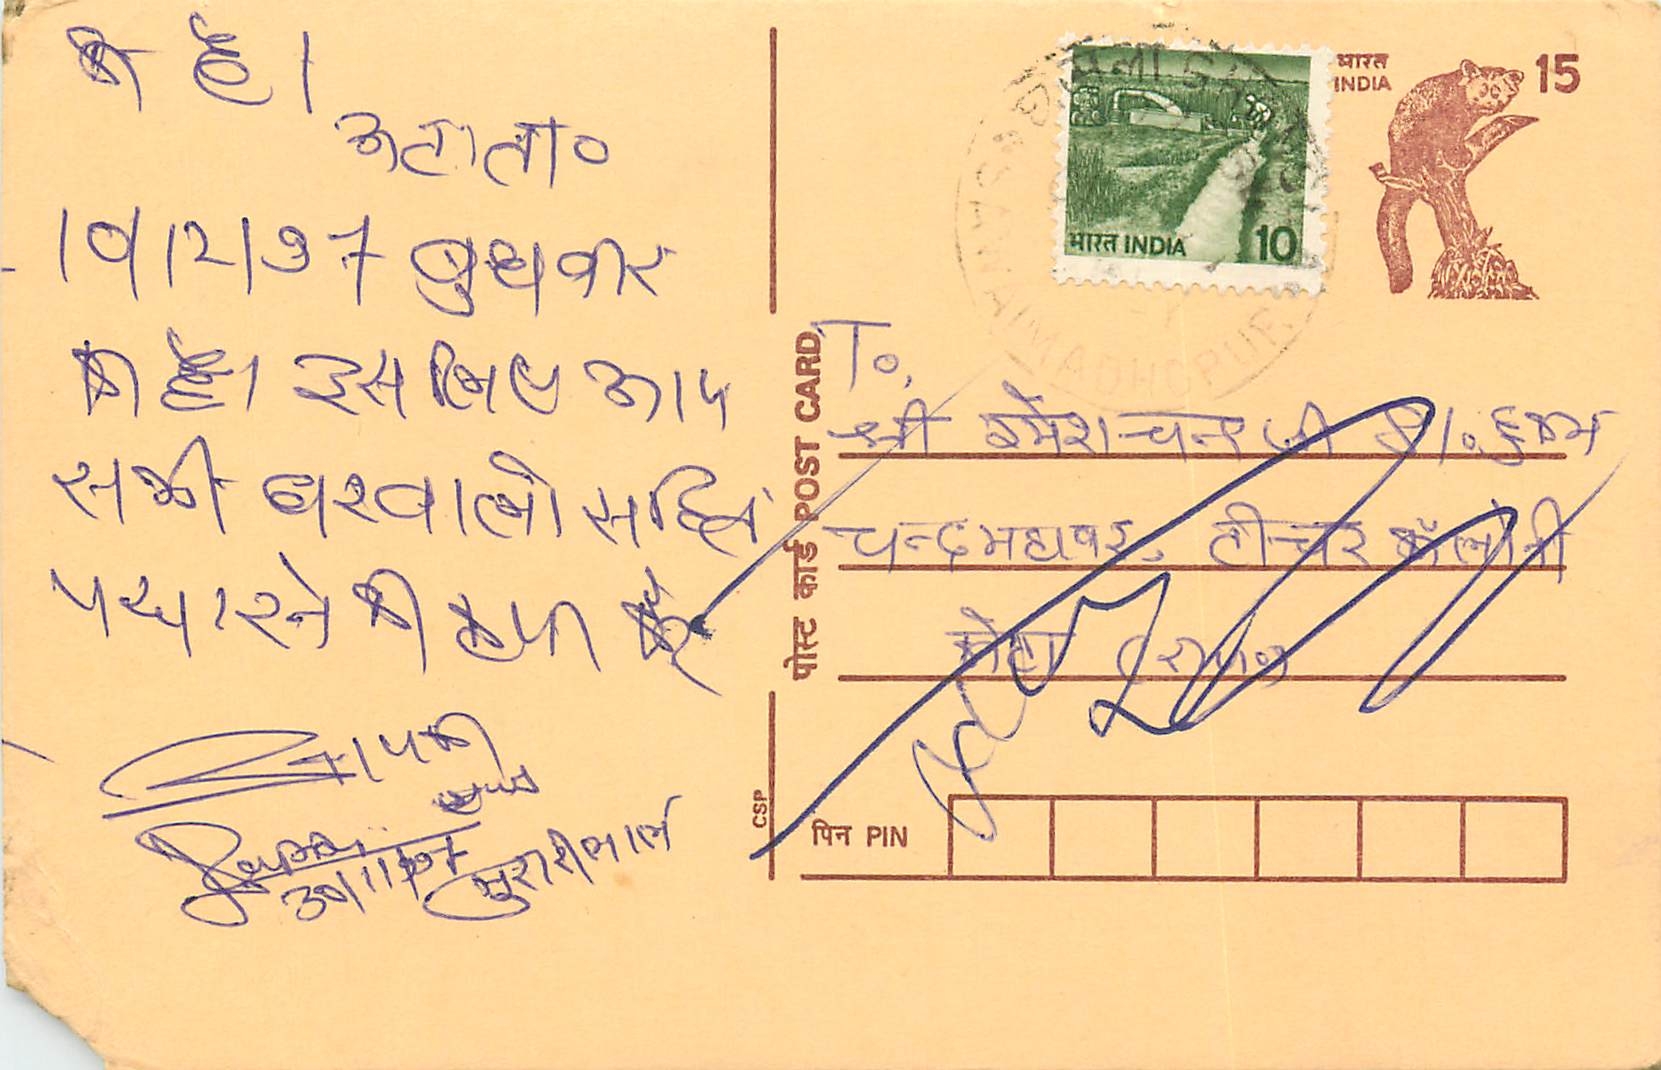 की है।
अतः ता०
10/12/97 बुधवार
की है। इस लिए आप
सभी घरवालो सहित
पधारने की कृपा करे
आपकी
30/11/97 मुरारीलाल
भारत INDIA 10
भारत
INDIA
15
SAWAI MADHOPUR
पोस्ट कार्ड POST CARD
To,
श्री रमेशचन्द जी
चन्द महावर, टीचर कॉलोनी
कोटा (राज०)
CSP
पिन PIN